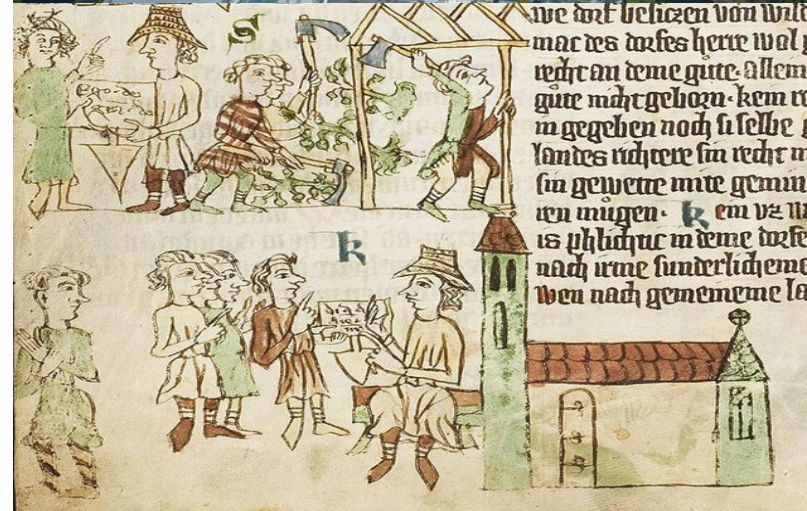 S
we dorf besiczen von wild
mac des dorfes herre wol
recht an deme gute. allem
gute nicht geborn. kem
in gegeben noch si selbe
landes richtere sin recht
sin gewette mite
ren mugen. k em vz
is phlichtic in deme dorfe
nach irme sunderlicheme
wen nach gemeineme la
k